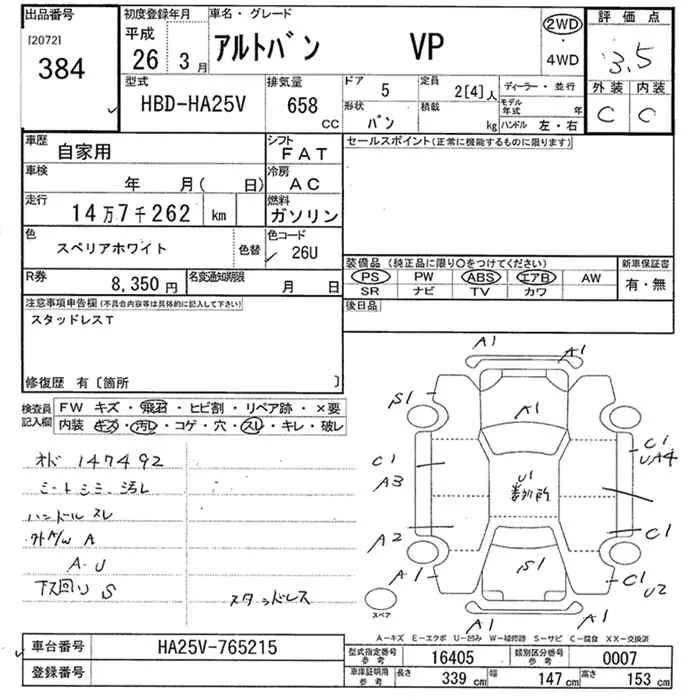 出品番号
[2072]
384
初度登録年月
平成
26 3月
車名・グレード
アルトバン VP
2WD
・
4WD
評価点
3.5
外装 内装
C C
型式
HBD-HA25V
排気量
658
CC
ドア 5
定員 2[4]人
形状 バン
積載 kg
ディーラー・並行
モデル年式 年
ハンドル 左・右
車歴
自家用
シフト
FAT
車検
年 月( 日)
冷房
AC
走行
14万7千262 km
燃料
ガソリン
色
スペリアホワイト
色替
色コード
26U
R券
8,350円
名変通知期限
月 日
セールスポイント(正常に機能するものに限ります)
装備品(純正品に限り○をつけてください)
新車保証書
PS PW ABS エアB AW
SR ナビ TV カワ
有・無
後日品
注意事項申告欄(不具合内容等は具体的に記入して下さい)
スタッドレスT
修復歴 有〔箇所 〕
検査員
記入欄
FW キズ・飛石・ヒビ割・リペア跡・×要
内装 キズ・汚レ・コゲ・穴・スレ・キレ・破レ
オド 147492
シートシミ、汚レ
ハンドルスレ
外A/W A
A・U
下回り S
スタッドレス
A1
A1
S1
A1
C1
A3
C1
UA4
U1
A2
C1
A1
S1
C1
U2
A1
A1
スペア
A-キズ E-エクボ U-凹み W-補修跡 S-サビ C-腐食 XX-交換済
車台番号
HA25V-765215
登録番号
型式指定番号
参考
16405
類別区分番号
参考
0007
車庫証明用
参考
長さ 339 cm
幅 147 cm
高さ 153 cm